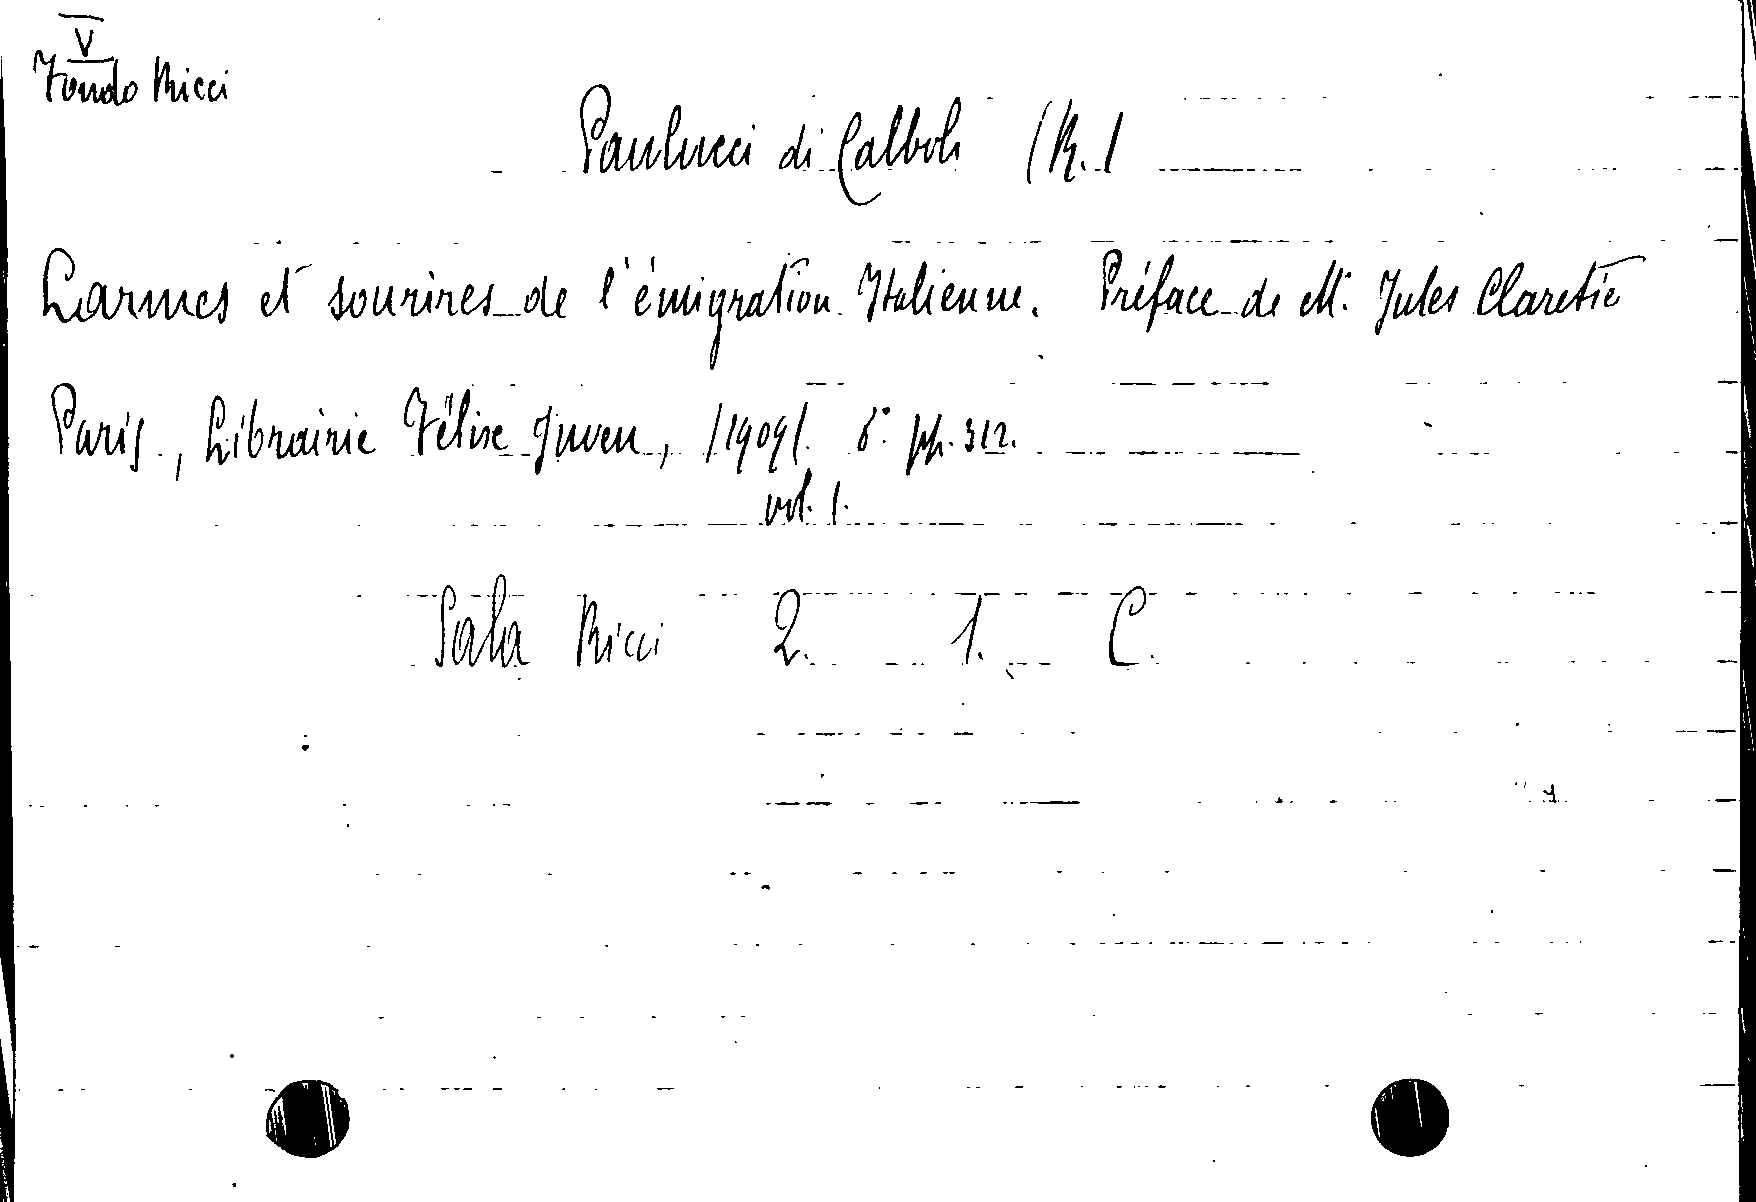 V
Fondo Ricci
Paulucci di Calboli (R.)
Larmes et sourires de l'émigration Italienne. Préface de M. Jules Claretie
Paris, Librairie Félix Juven, (1909). 8° pp. 312.
vol. 1.
Sala Ricci 2. 1. C.